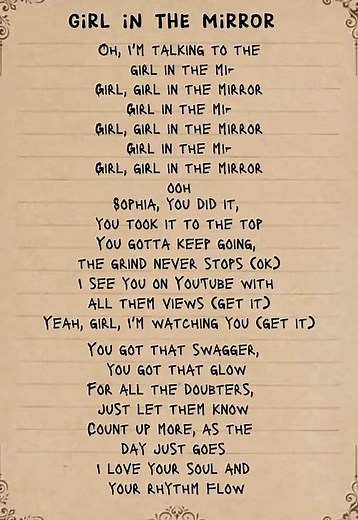 GiRL iN THE MiRROR
OH, I'M TALKING TO THE
GIRL IN THE MI-
GIRL, GIRL IN THE MIRROR
GIRL IN THE MI-
GIRL, GIRL IN THE MIRROR
GIRL IN THE MI-
GIRL, GIRL IN THE MIRROR
OOH
SOPHIA, YOU DID IT,
YOU TOOK IT TO THE TOP
YOU GOTTA KEEP GOING,
THE GRIND NEVER STOPS (OK)
I SEE YOU ON YOUTUBE WITH
ALL THEM VIEWS (GET IT)
YEAH, GIRL, I'M WATCHING YOU (GET IT)
YOU GOT THAT SWAGGER,
YOU GOT THAT GLOW
FOR ALL THE DOUBTERS,
JUST LET THEM KNOW
COUNT UP MORE, AS THE
DAY JUST GOES
I LOVE YOUR SOUL AND
YOUR RHYTHM FLOW